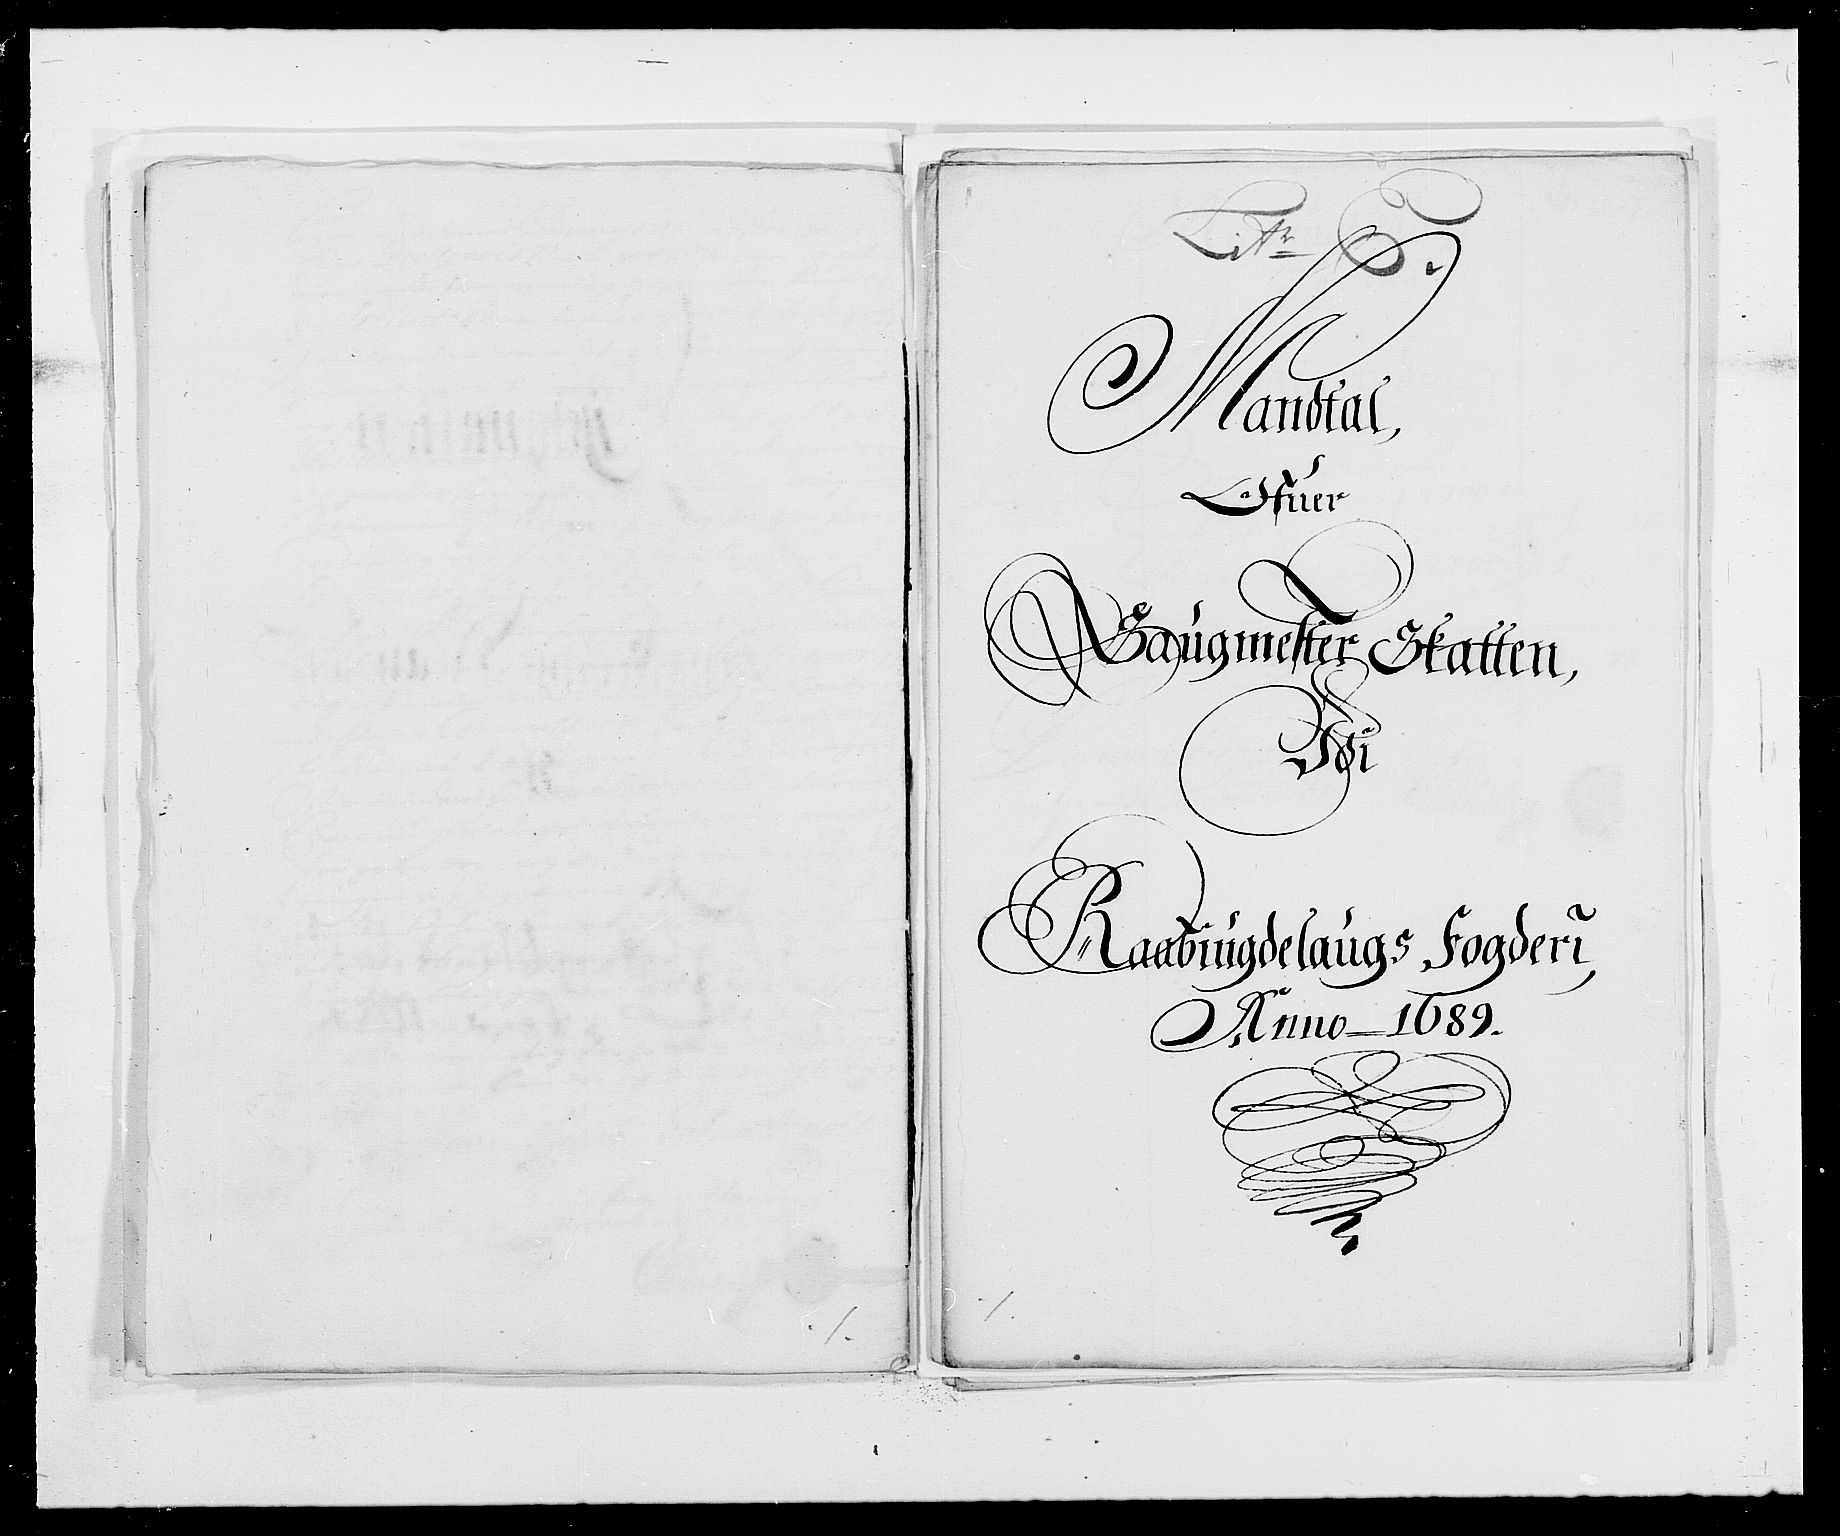 Litr
Mandtal,
Ofuer
Saugmester Skatten,
Udi
Raabÿugdelaugs Fogderi,
Anno 1689.